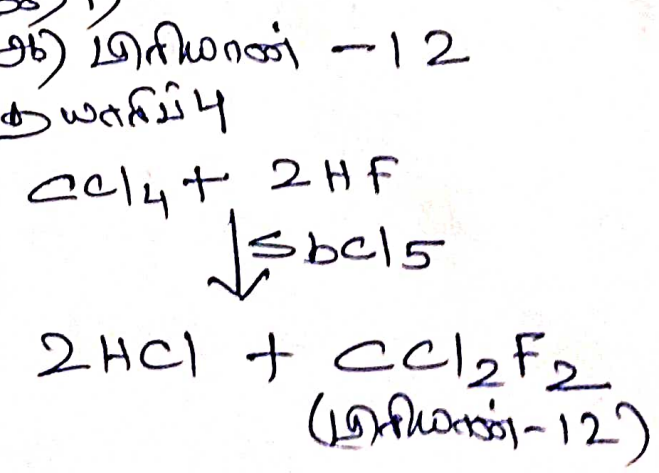 அ) ஃபிரியான் -12
தயாரிப்பு
CCl4 + 2HF
SbCl5
2HCl + CCl2F2
(ஃபிரியான்-12)